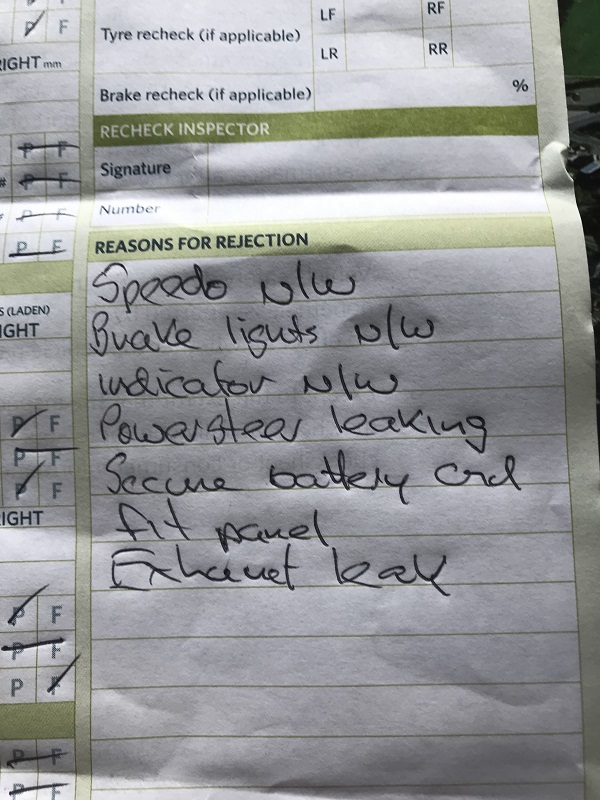 P F
Tyre recheck (if applicable) LF RF
LR RR
RIGHT mm
Brake recheck (if applicable) %
RECHECK INSPECTOR
P F
Signature
# P F
P F
Number
P F
REASONS FOR REJECTION
Speedo N/W
S (LADEN)
IGHT
Brake lights N/W
indicator N/W
P F
Powersteer leaking
P F
P F
Secure battery and
IGHT
fit panel
Exhaust leak
P F
P F
P F
P F
P F